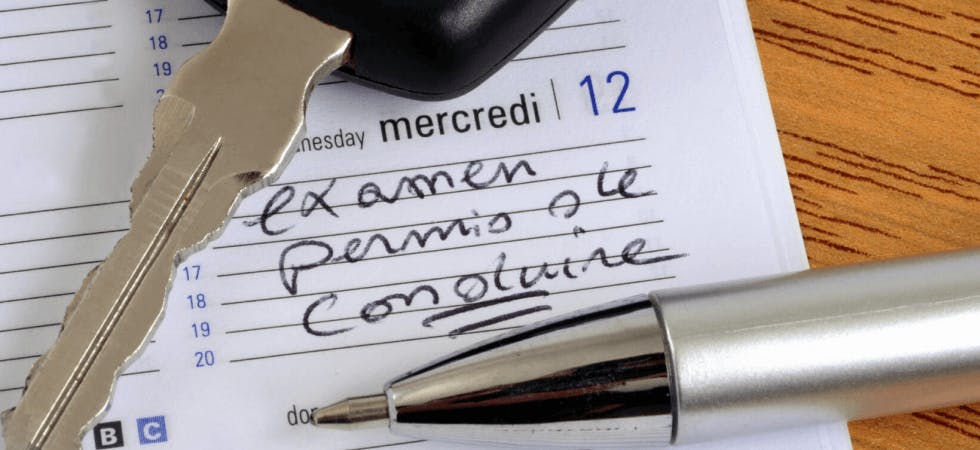 17
18
19
mercredi 12
examen
permis de
conduire
17
18
19
20
B C